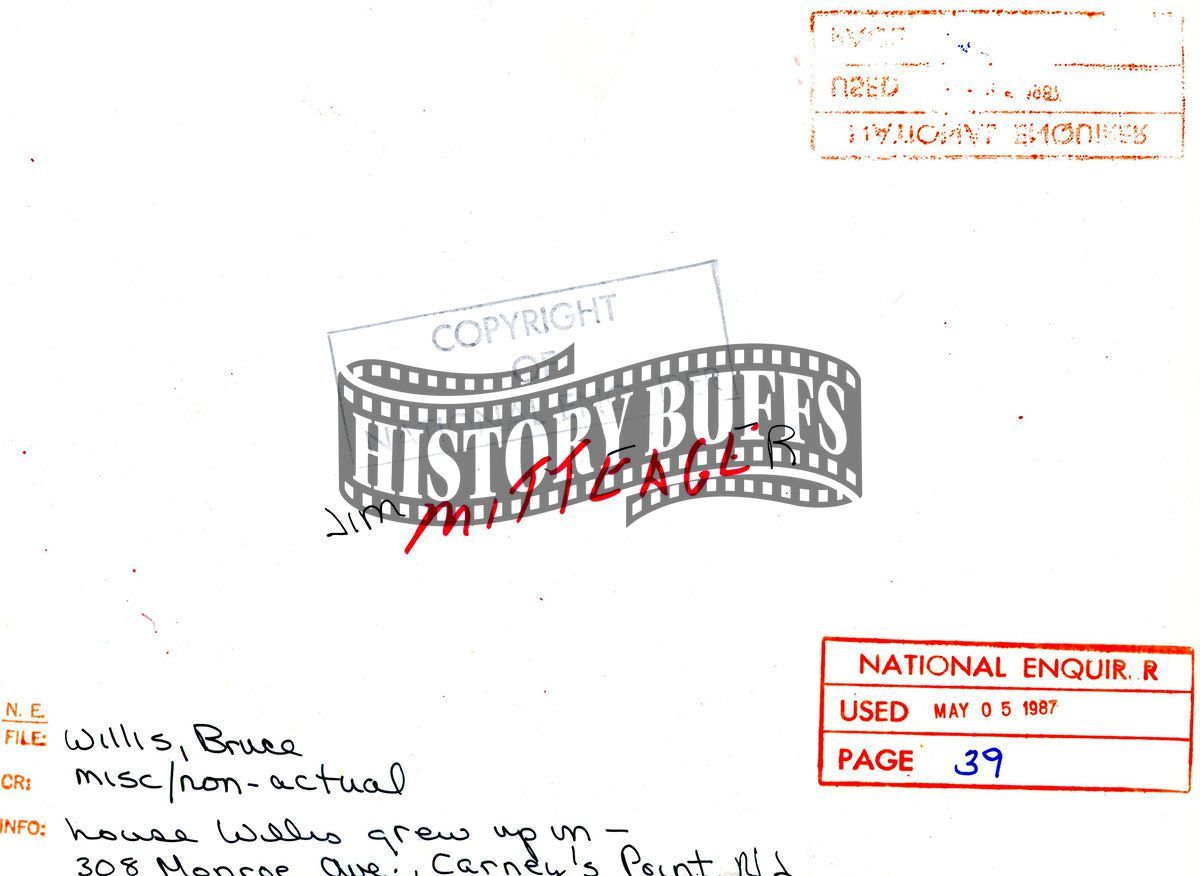 USED
NATIONAL ENQUIRER
COPYRIGHT
OF
HISTORY BUFFS
JIM MITTEAGER
NATIONAL ENQUIR. R
USED MAY 05 1987
PAGE 39
N. E.
FILE: Willis, Bruce
CR: misc/non-actual
INFO: house Willis grew up in –
308 Monroe Ave., Carney's Point, NJ